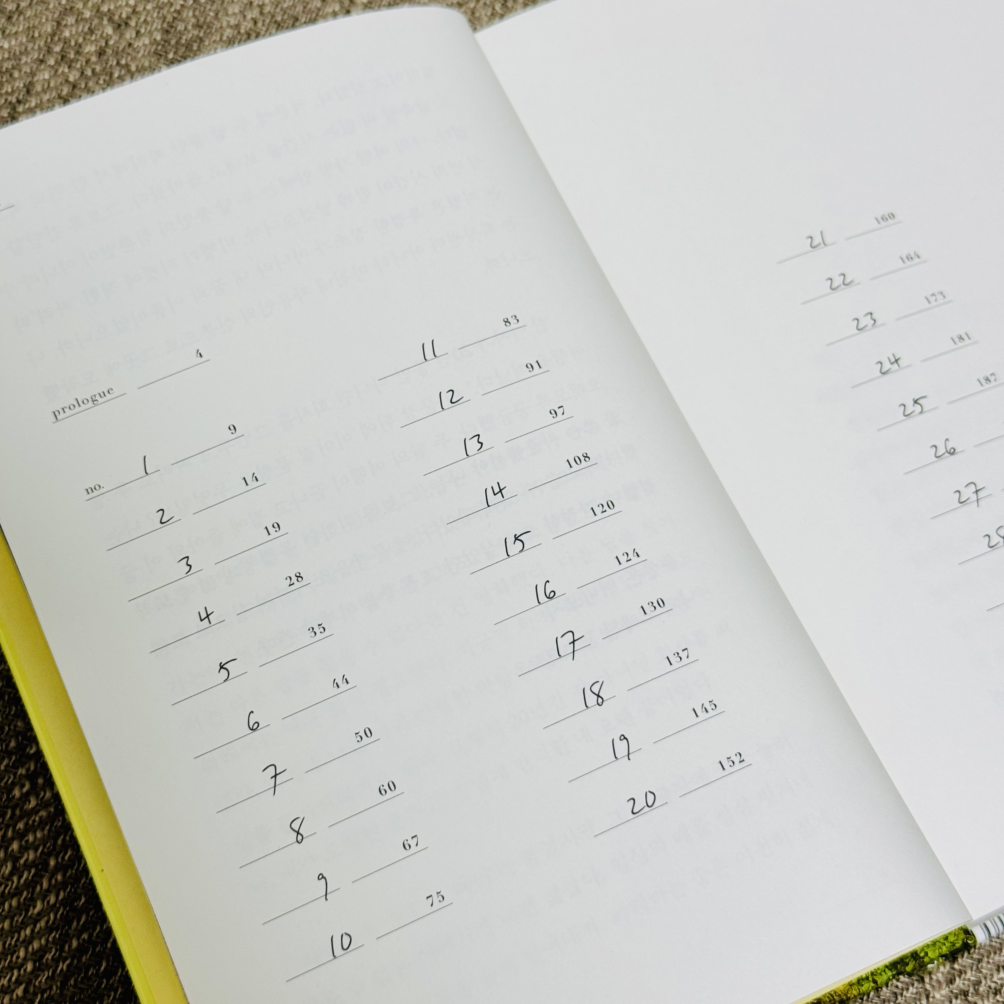 prologue 4
no. 1 9
2 14
3 19
4 28
5 35
6 44
7 50
8 60
9 67
10 75
11 83
12 91
13 97
14 108
15 120
16 124
17 130
18 137
19 145
20 152
21 160
22 164
23 173
24 181
25 187
26
27